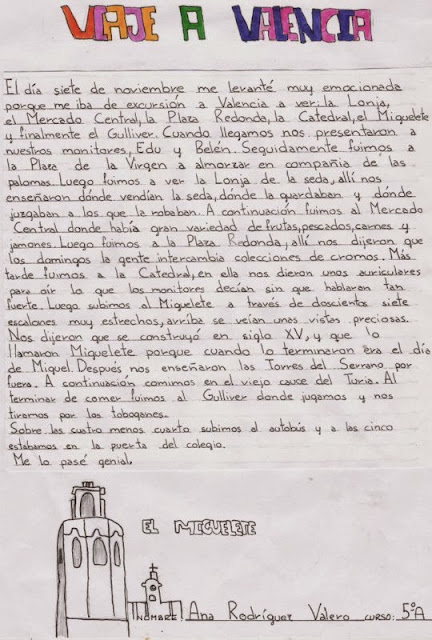 VIAJE A VALENCIA
El día siete de noviembre me levanté muy emocionada
porque me iba de excursión a Valencia a ver: la Lonja,
el Mercado Central, la Plaza Redonda, la Catedral, el Miguelete
y finalmente el Gulliver. Cuando llegamos nos presentaron a
nuestros monitores, Edu y Belén. Seguidamente fuimos a
la Plaza de la Virgen a almorzar en compañia de las
palomas. Luego fuimos a ver la Lonja de la seda, allí nos
enseñaron dónde vendían la seda, dónde la guardaban y dónde
juzgaban a los que la robaban. A continuación fuimos al Mercado
Central donde había gran variedad de frutas, pescados, carnes y
jamones. Luego fuimos a la Plaza Redonda, allí nos dijeron que
los domingos la gente intercambia colecciones de cromos. Más
tarde fuimos a la Catedral, en ella nos dieron unos auriculares
para oír lo que los monitores decían sin que hablaran tan
fuerte. Luego subimos al Miguelete a través de doscientos siete
escalones muy estrechos, arriba se veían unas vistas preciosas.
Nos dijeron que se construyó en siglo XV, y que lo
llamaron Miguelete porque cuando lo terminaron era el día
de Miguel. Después nos enseñaron las Torres del Serrano por
fuera. A continuación comimos en el viejo cauce del Turia. Al
terminar de comer fuimos al Gulliver donde jugamos y nos
tiramos por los toboganes.
Sobre las cuatro menos cuarto subimos al autobús y a las cinco
estabamos en la puerta del colegio.
Me lo pasé genial.
EL MIGUELETE
NOMBRE: Ana Rodríguez Valero CURSO: 5ºA